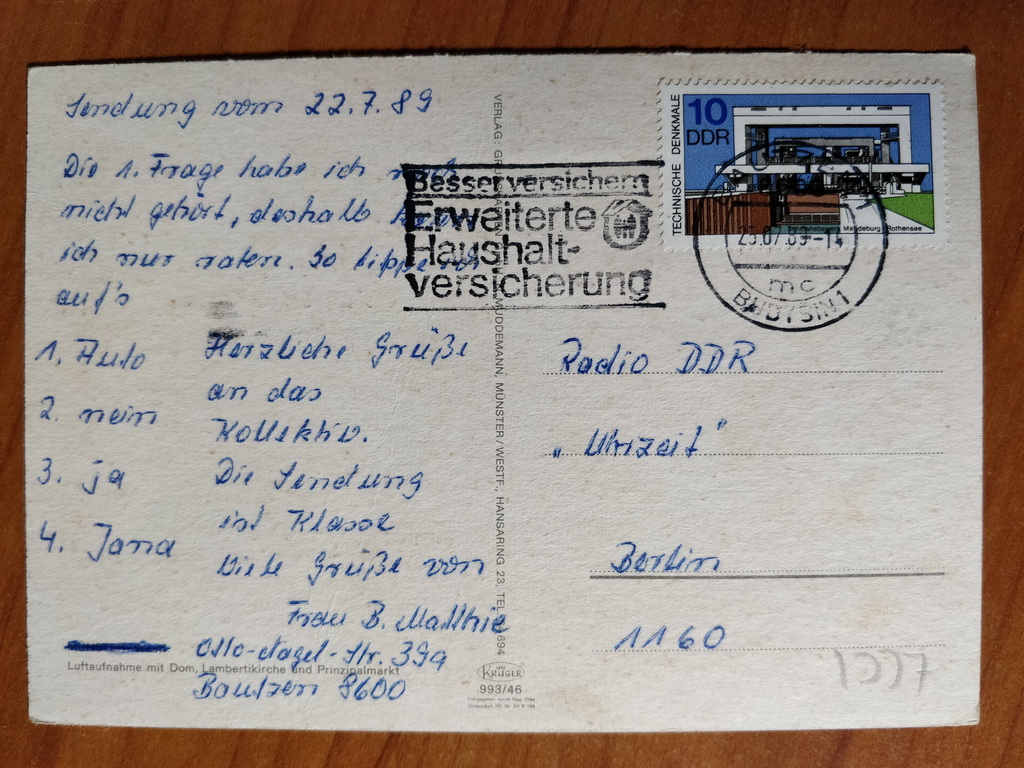 Sendung vom 22.7.89
Die 1. Frage habe ich noch
nicht gehört, deshalb kann
ich nur raten. So tippe ich
auf's
1. Auto
2. nein
3. ja
4. Jana
Herzliche Grüße
an das
Kollektiv.
Die Sendung
ist Klasse
Viele Grüße von
Frau B. Matthie
Otto-Nagel-Str. 39a
Bautzen 8600
Luftaufnahme mit Dom, Lambertikirche und Prinzipalmarkt
VERLAG: MUDDEMANN, MÜNSTER/WESTF., HANSARING 23, TEL. 694
KRÜGER
993/46
Besser versichern
Erweiterte
Haushalt-
versicherung
10
DDR
TECHNISCHE DENKMALE
Magdeburg Rothensee
25.07.89-14
mc
BUDYSIN 1
Radio DDR
"Uhrzeit"
Berlin
1160